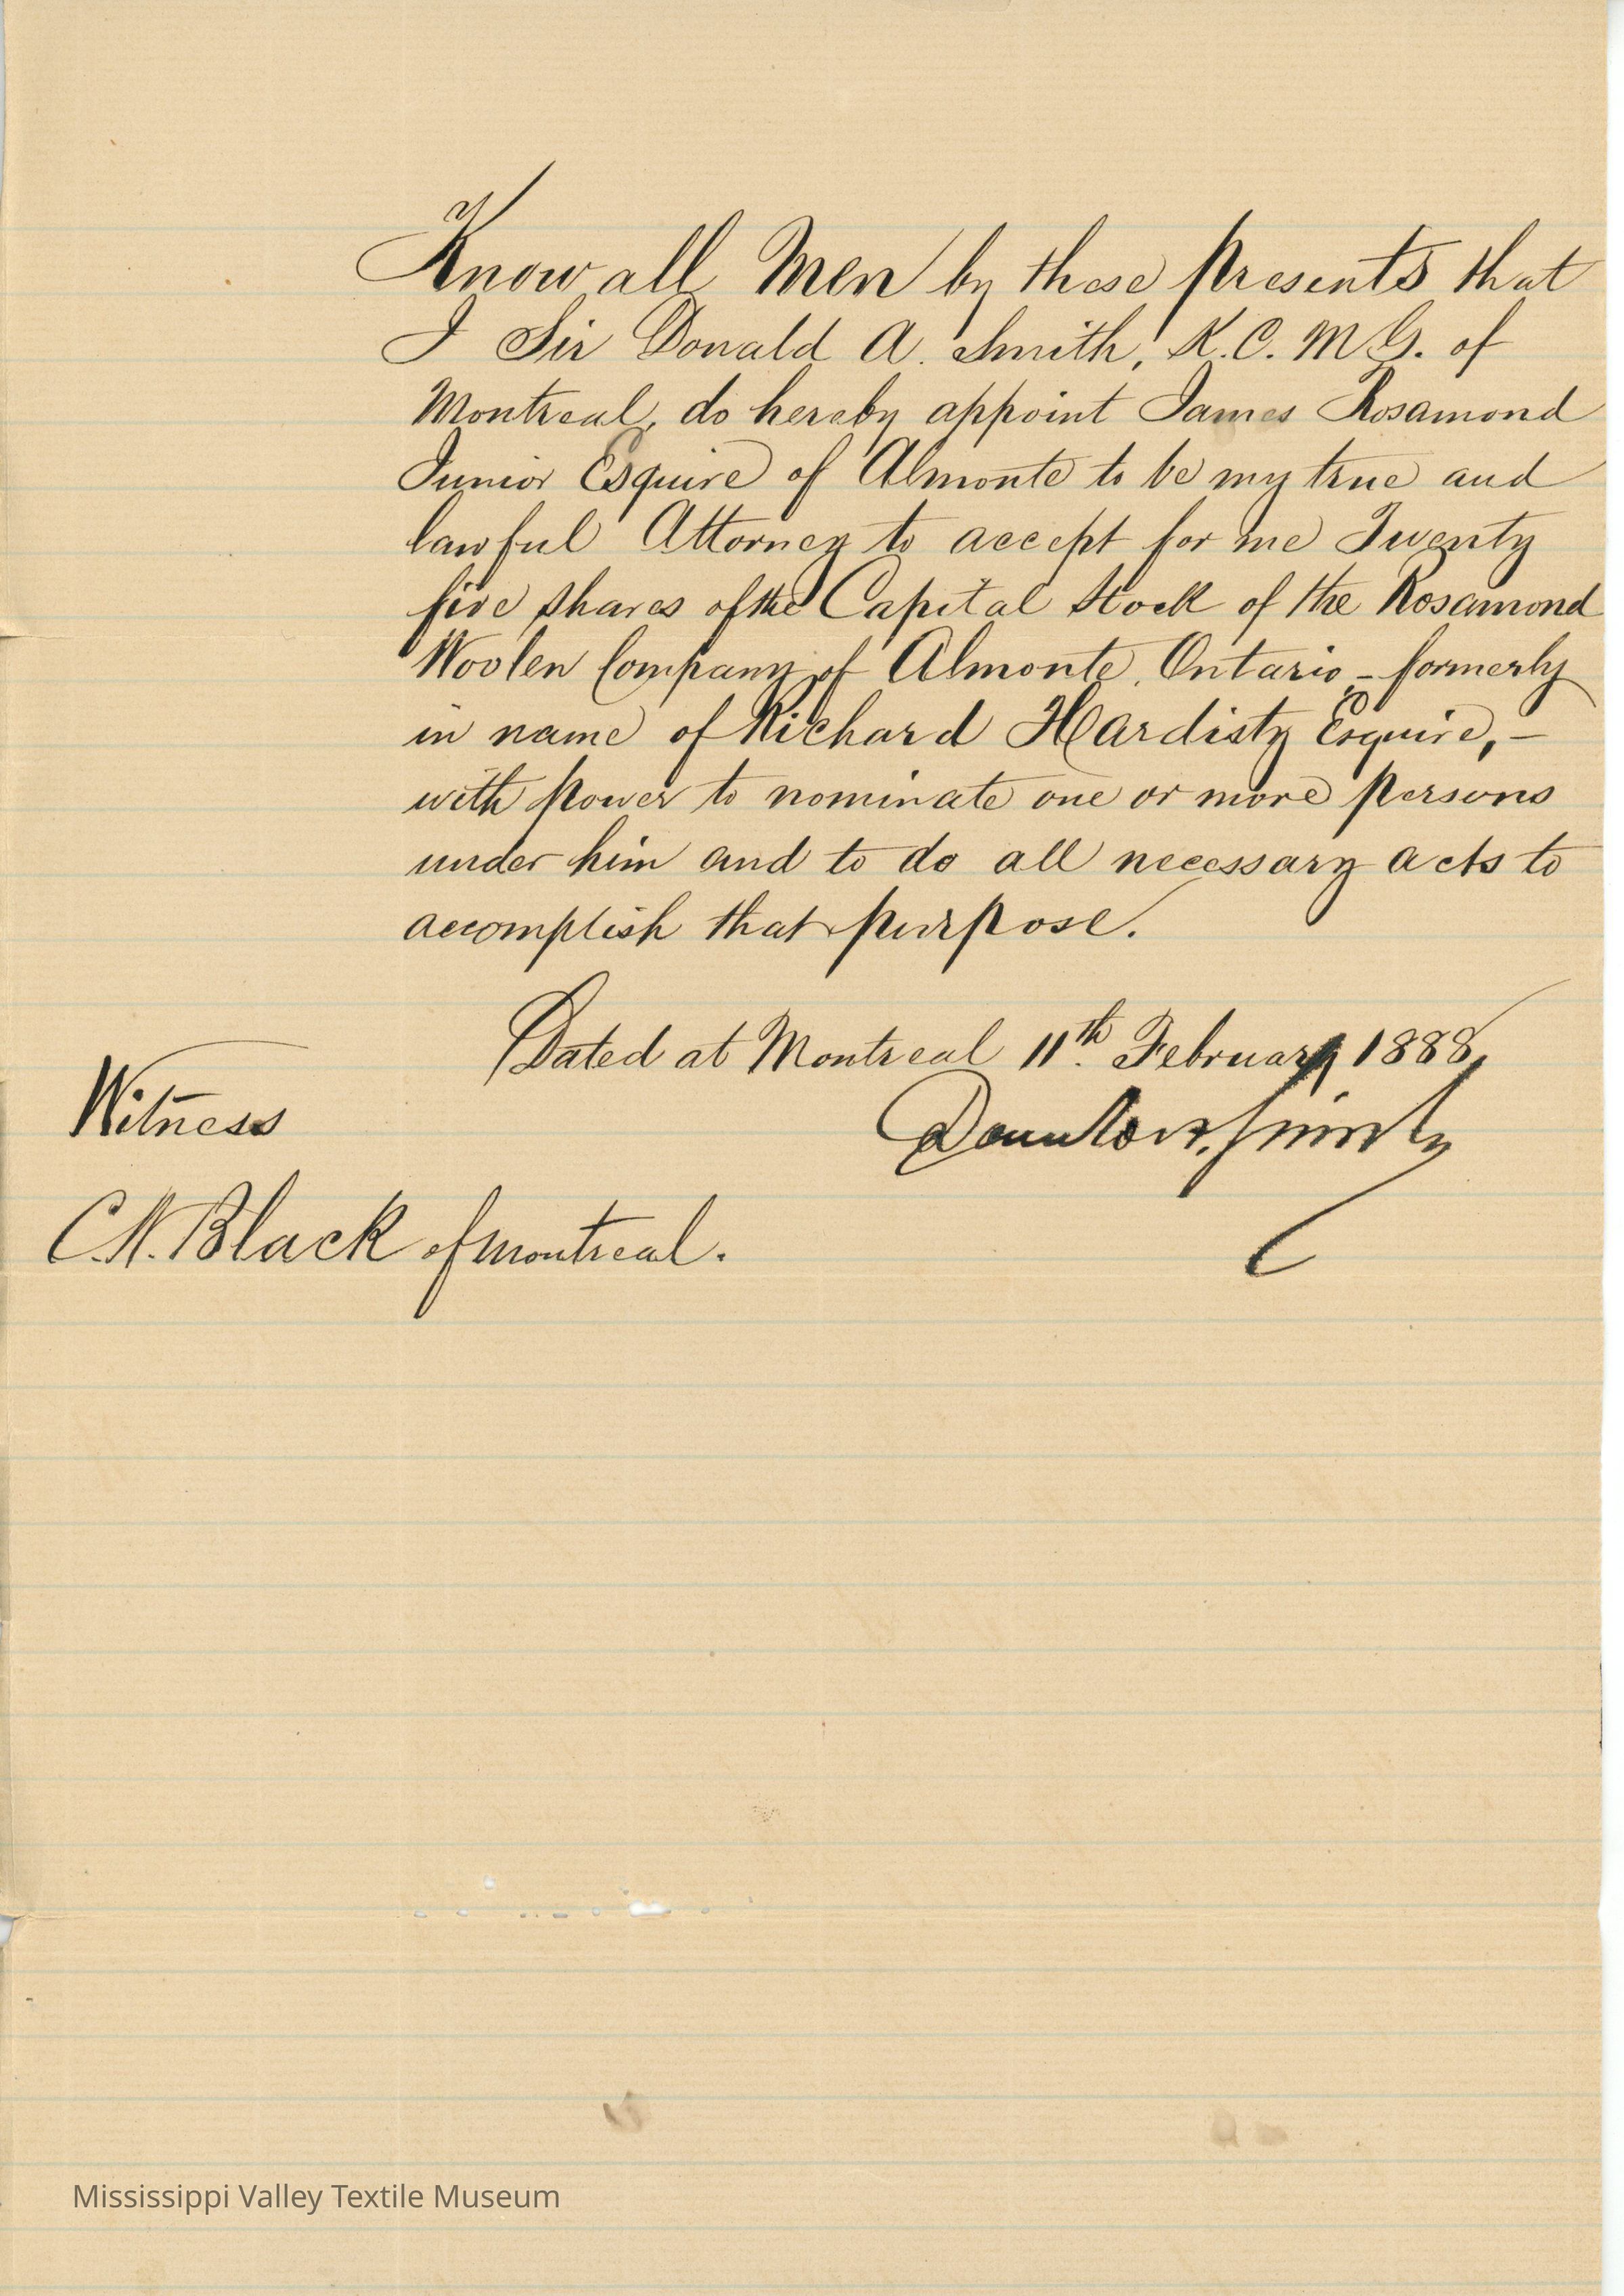 Know all Men by these presents that
I Sir Donald A. Smith, K.C.M.G. of
Montreal, do hereby appoint James Rosamond
Junior Esquire of Almonte to be my true and
lawful Attorney to accept for me Twenty
five shares of the Capital Stock of the Rosamond
Woolen Company of Almonte, Ontario, - formerly
in name of Richard Hardisty Esquire, -
with power to nominate one or more persons
under him and to do all necessary acts to
accomplish that purpose.
Dated at Montreal 11th. February 1888,
Witness
Donald A. Smith
C.N. Black of Montreal.
Mississippi Valley Textile Museum